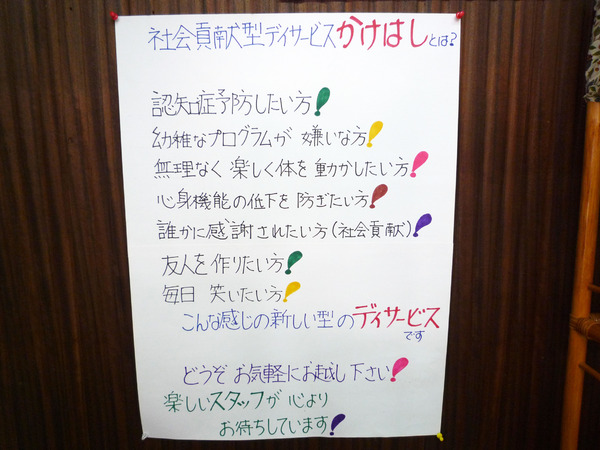 社会貢献型デイサービスかけはしとは?
認知症予防したい方!
幼稚なプログラムが 嫌いな方!
無理なく 楽しく体を 動かしたい方!
心身機能の低下を 防ぎたい方!
誰かに感謝されたい方(社会貢献)!
友人を作りたい方!
毎日 笑いたい方!
こんな感じの新しい型のデイサービスです
どうぞ お気軽にお越し下さい!
楽しいスタッフが 心より
お待ちしています!